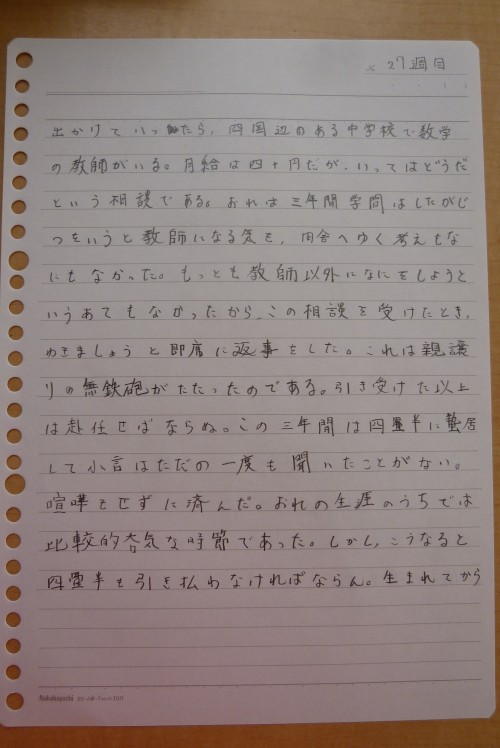 27週目
出かけていったら、四国辺のある中学校で数学
の教師がいる。月給は四十円だが、いってはどうだ
という相談である。おれは三年間学問はしたがじ
つをいうと教師になる気も、田舎へゆく考えもな
にもなかった。もっとも教師以外になにをしようと
いうあてもなかったから、この相談を受けたとき、
ゆきましょうと即席に返事をした。これは親譲
りの無鉄砲がたたったのである。引き受けた以上
は赴任せばならぬ。この三年間は四畳半に蟄居
して小言はただの一度も聞いたことがない。
喧嘩もせずに済んだ。おれの生涯のうちでは
比較的呑気な時節であった。しかし、こうなると
四畳半も引き払わなければならん。生まれてから
Nakabayashi